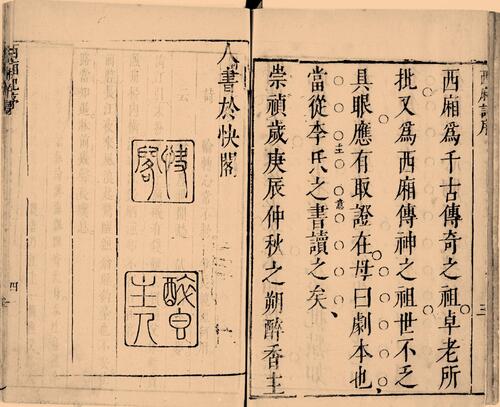 西廂記序
三
西廂爲千古傳奇之祖卓老所
批又爲西廂傳神之祖世不乏
具眼應有取證在毋曰劇本也
主意
當從李氏之書讀之矣
崇禎歲庚辰仲秋之朔醉香主
人書於快閣
快閣
醉香主人
西廂記序
四